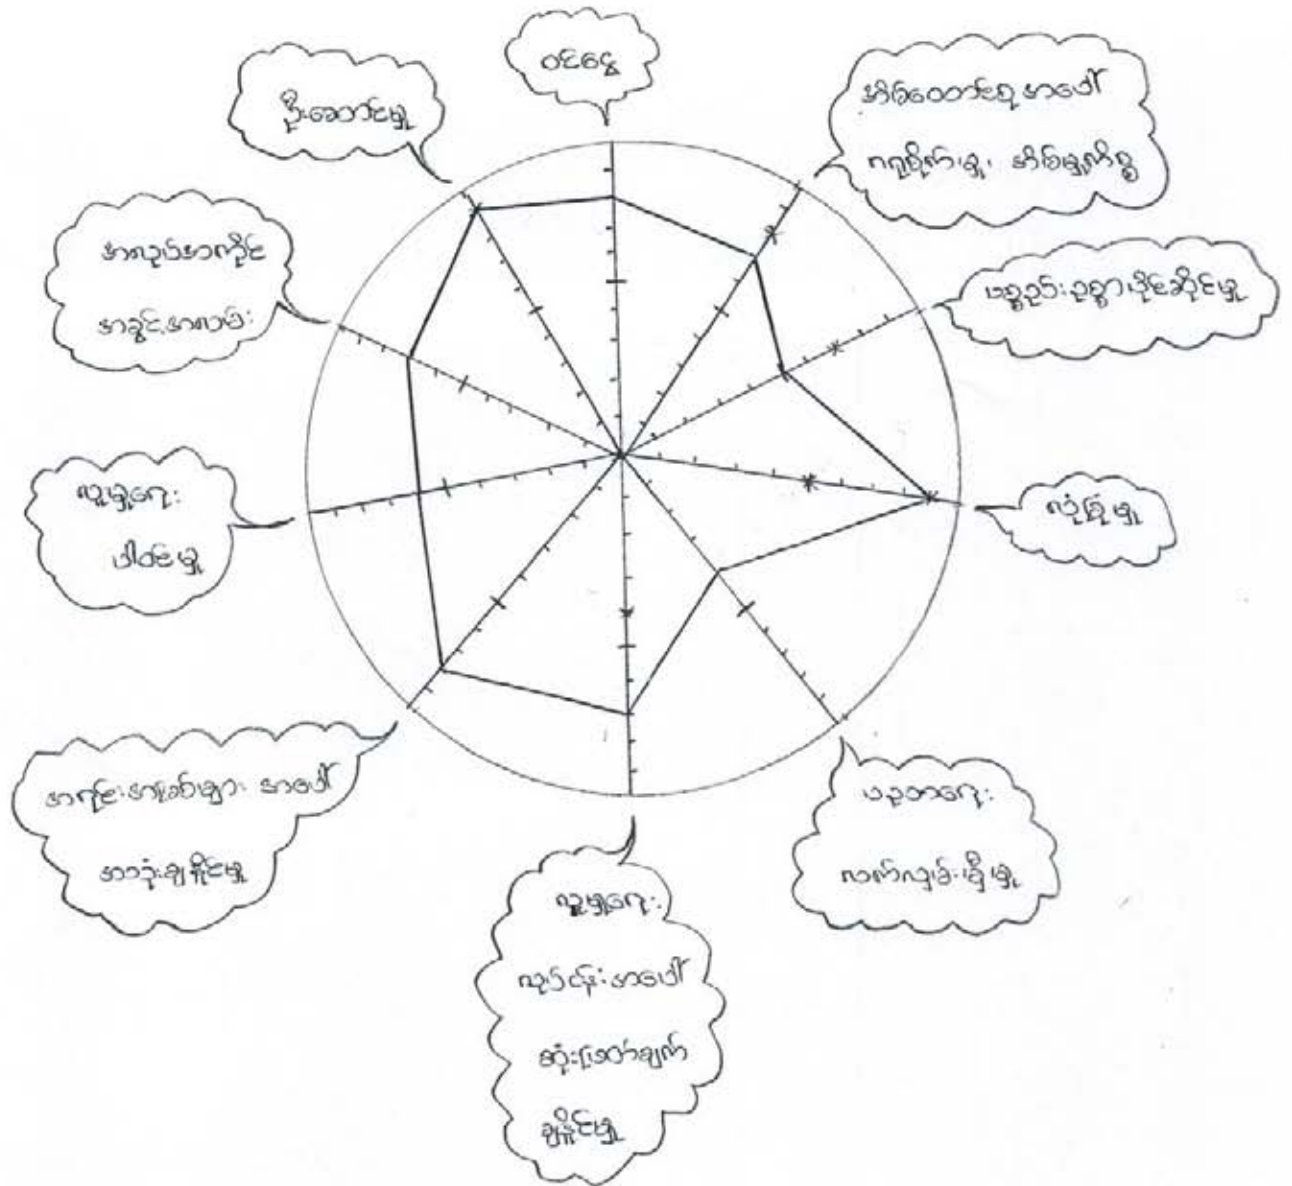 ဝင်ငွေ
အိမ်ထောင်စု အပေါ်
ဂရုစိုက်မှု၊ အိမ်မှုကိစ္စ
ပစ္စည်းဥစ္စာပိုင်ဆိုင်မှု
လုံခြုံမှု
ပညာရေး
လက်လှမ်းမှီမှု
လူမှုရေး
လုပ်ငန်းအပေါ်
ဆုံးဖြတ်ချက်
ချနိုင်မှု
အရင်းအမြစ်များ အပေါ်
အသုံးချနိုင်မှု
လူမှုရေး
ပါဝင်မှု
အလုပ်အကိုင်
အခွင့်အလမ်း
ဦးဆောင်မှု